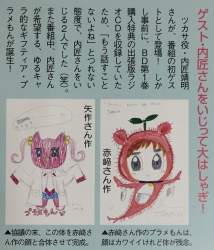 ゲスト・内匠さんをいじって大はしゃぎ！
ツカサ役・内匠靖明
さんが、番組の初ゲス
トとして登場！　しか
し事前に、BD第1巻
購入特典の出張版ラジ
オCDを収録していた
ため、「もう話すこと
ないよね」とつれない
態度で、内匠さんをい
じる2人でした（笑）。
また番組中、内匠さん
が希望する、ゆるキャ
ラ的なギフティア・プ
ラメもんが誕生！
矢作さん作
赤﨑さん作
プラメもん
▲協議の末、この体を赤﨑さ
ん作の顔と合体させて完成。
▲赤﨑さん作のプラメもんは、
顔はカワイイけれど体が残念。